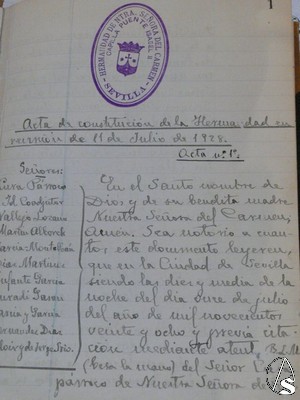 HERMANDAD DE NTRA. SEÑORA DEL CARMEN
CAPILLA PUENTE ISABEL II
SEVILLA
Acta de constitución de la Hermandad en
reunión de 11 de Julio de 1928.
Acta nº 1º.
Señores:
Cura Párroco
Id. Coadjutor
Vallejo Lozano
Martín
García Montalbán
Días Martín
Infante García
Jurado García
García y García
Fernández Díaz
En el Santo nombre de
Dios y de su bendita madre
Nuestra Señora del Carmen,
Amén. Sea notorio a cuan-
tos, este documento leyeren,
que en la Ciudad de Sevilla
siendo las diez y media de la
noche del día once de julio
del año de mil novecientos
veinte y ocho y previa cita-
ción mediante atent. B.L.M.
(besa la mano) del Señor
párroco de Nuestra Señora de